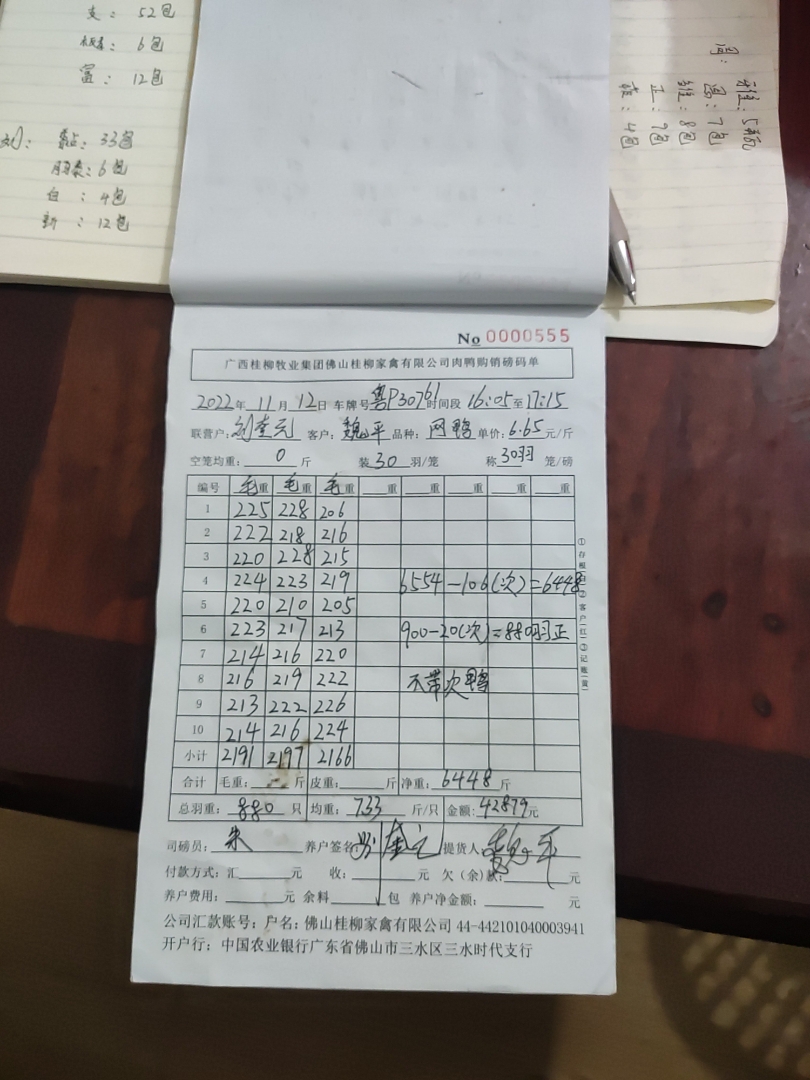 支：52包
6包
富：12包
刘：
33包
6包
白：4包
新：12包
周：
雅：5瓶
富：7包
维：8包
正：7包
4包
No 0000555
广西桂柳牧业集团佛山桂柳家禽有限公司肉鸭购销磅码单
2022年11月12日 车牌号粤P30761时间段 16:05至17:15
联营户：刘奎元 客户：魏平 品种：网鸭 单价：6.65元/斤
空笼均重：0 斤 装30羽/笼 称30羽 笼/磅
编号 毛重 毛重 毛重 重 重 重 重 重
1 225 228 206
2 222 218 216
3 220 228 215
4 224 223 219 6554-106(次)=6448
5 220 210 205
6 223 217 213 900-20(次)=880羽正
7 214 216 220
8 216 219 222 不带次鸭
9 213 222 226
10 214 216 224
小计 2191 2197 2166
合计 毛重： 斤 皮重： 斤 净重：6448斤
总羽重：880 只 均重：7.33 斤/只 金额：42879元
司磅员：朱 养户签名：刘奎元 提货人：魏平
付款方式：汇 元 收： 元 欠（余）款： 元
养户费用： 元 余料 包 养户净金额： 元
公司汇款账号：户名：佛山桂柳家禽有限公司 44-442101040003941
开户行：中国农业银行广东省佛山市三水区三水时代支行
①存根(白)②客户(红)③记账(黄)